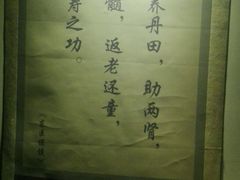 养丹田，助两肾，
髓，返老还童，
寿之功。